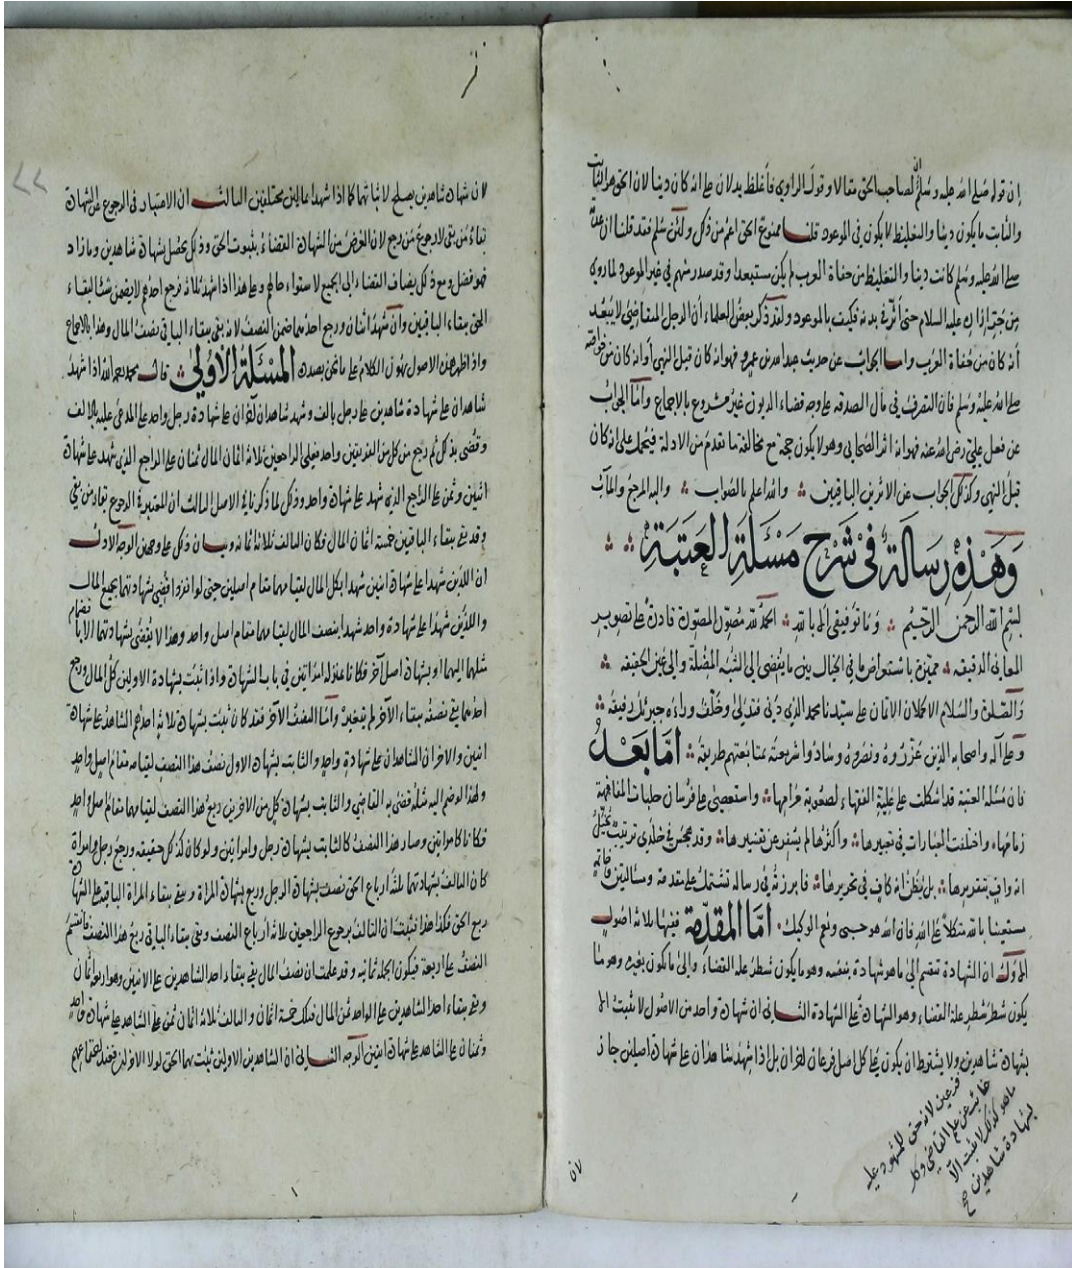 إن قوله صلى الله عليه وسلم ان لصاحب الحق مقالا وقول الراوي فأغلظ يدلان على انه كان دينا لان الحق هو الثابت
والثابت ما يكون دينا والتغليظ لا يكون في الموعود قلنا ممنوع الحق اعم من ذلك ولئن سلم فقد قلنا ان عليه
صلى الله عليه وسلم كانت دينا والتغليظ من حفاة العرب لم يكن مستبعدا وقد صدر منهم في غير الموعود لما روي
من جبذ إزاره عليه السلام حتى أثر في بدنه فكيف بالموعود ولقد ذكر بعض العلماء أن الرجل المتقاضي لا يبعد
أنه كان من جفاة العرب واما الجواب عن حديث عبد الله بن عمرو فهو انه كان قبل النهي أو انه كان من خواصه
صلى الله عليه وسلم فان التصرف في مال الصدقة على وجه قضاء الديون غير مشروع بالاجماع وأما الجواب
عن فعل علي رضى الله عنه فهو انه اثر الصحابي وهو لا يكون حجة مع مخالفة ما تقدم من الادلة فيحمل على انه كان
قبل النهي وكذلك الجواب عن الاثرين الباقيين والله اعلم بالصواب واليه المرجع والمآب
وهذه رسالة في شرح مسئلة العتبة
بسم الله الرحمن الرحيم وما توفيقي إلا بالله الحمد لله مصوّر المصوّرة قادرة على تصوير
المعاني الدقيقه مميّزة باستعراض ما في الخيال بين ما يفضي الى الشبه المضلة والى عين الحقيقه
والصلوة والسلام الاكملان الاتمان على سيدنا محمد الذي دنى فتدلى وخلّف وراءه جبرئل رفيقه
وعلى آله واصحابه الذين عزروه ونصروه وسادوا شريعته بمتابعتهم طريقه أما بعد
فان مسئلة العتبة قد اشكلت على علية الفقهاء لصعوبة مرامها واستعصى على فرسان حلبات المفاهمة
زمامها واختلفت العبارات في تعبيرها واكثرها لم يسفر عن تفسيرها وقد هجس في خلدي ترتيب تخيل
انه واف بتقريرها بل يظن انه كاف في تحريرها فابرزته في رسالة تشتمل على مقدمة ومسالتين وخاتمة
مستعينا بالله متكلا على الله فان الله هو حسبي ونعم الوكيل أما المقدمة ففيها ثلاثة اصول
الاول ان الشهادة تنقسم الى ما هو شهادة بنفسه وهو ما يكون شطر علة القضاء والى ما يكون بغيره وهو ما
يكون شطر شطر علة القضاء وهو الشهادة على الشهادة الثاني ان شهادة واحد من الاصول لا تثبت الا
بشهادة شاهدين ولا يشترط ان يكون على كل اصل فرعان اخران بل إذا شهد شاهدان على شهادة اصلين جاز
فرعين لانه حق للمشهود عليه
غائب عن علم القاضي وكل
ما هو كذلك لا يثبت الا
بشهادة شاهدين صح
لان
لان شهادة شاهدين يصلح لاثباتها كما اذا شهدا عالمين مختلفين الثالث ان الاعتبار في الرجوع عن الشهادة
بقاء من بقي لا رجوع من رجع لان الغرض من الشهادة القضاء بثبوت الحق وذلك يحصل بشهادة شاهدين وما زاد
فهو فضل ومع ذلك يضاف القضاء إلى الجميع لاستواء حالهم وعلى هذا اذا شهد ثلاثة فرجع احدهم لا يضمن شئا لبقاء
الحق ببقاء الباقيين وان شهد اثنان ورجع احدهما ضمن النصف لانه بقى ببقاء الباقي نصف المال وهذا بالاجماع
واذا ظهر هذه الاصول نقول الكلام على ما نحن بصدده المسئلة الاولى قال محمد رحمه الله اذا شهد
شاهدان على شهادة شاهدين على رجل بالف وشهد شاهدان آخران على شهادة رجل واحد على المدعى عليه بالالف
وقضى بذلك ثم رجع من كل من الفريقين واحد فعلى الراجعين ثلاثة اثمان المال ثمنان على الراجع الذي شهد على شهادة
اثنين وثمن على الراجع الذي شهد على شهادة واحد وذلك لما ذكرنا في الاصل الثالث ان المعتبر في الرجوع بقاء من بقي
وقد بقي ببقاء الباقيين خمسة اثمان المال فكان التالف ثلاثة اثمانه وبيان ذلك على وجهين الوجه الاول
ان اللذين شهدا على شهادة اثنين شهدا بكل المال لقيامهما مقام اصلين حتى لو انفردا قضى بشهادتهما بجميع المال
واللذين شهدا على شهادة واحد شهدا بنصف المال لقيامهما مقام اصل واحد وهذا لا يقضى بشهادتهما الا بانضمام
مثلهما اليهما او بشهادة اصل آخر فكانا بمنزلة امرأتين في باب الشهادة واذا ثبت بشهادة الاولين كل المال ورجع
احدهما بقي نصفه ببقاء الآخر لم يتغير وأما النصف الآخر فقد كان ثبت بشهادة ثلاثة احدهم الشاهد على شهادة
اثنين والاخران الشاهدان على شهادة واحد والثابت بشهادة الاول نصف هذا النصف لقيامه مقام اصل واحد
ولهذا لو ضم اليه مثله قضى به القاضي والثابت بشهادة كل من الاخرين ربع هذا النصف لقيامهما مقام اصل واحد
فكانا كامرأتين وصار هذا النصف كالثابت بشهادة رجل وامراتين ولو كان كذلك حقيقه ورجع رجل وامراة
كان التالف بشهادتهما ثلثة ارباع الحق نصف بشهادة الرجل وربع بشهادة المراة وبقي ببقاء المراة الباقية على الشهادة
ربع الحق فكذا هذا فثبت ان التالف برجوع الراجعين ثلاثة ارباع النصف وبقى ببقاء الباقي ربع هذا النصف فانقسم
النصف على اربعة فيكون الجملة ثمانية وقد علمت ان نصف المال بقي ببقاء احد الشاهدين على الاثنين وهو اربعة اثمان
وبقي ببقاء احد الشاهدين على الواحد ثمن المال فتلك خمسة اثمان والتالف ثلاثة اثمان ثمن على الشاهد على شهادة واحد
وثمنان على الشاهد على شهادة اثنين الوجه الثاني ان الشاهدين الاولين ثبت بهما الحق لولا الاخرين فعند اجتماعهم